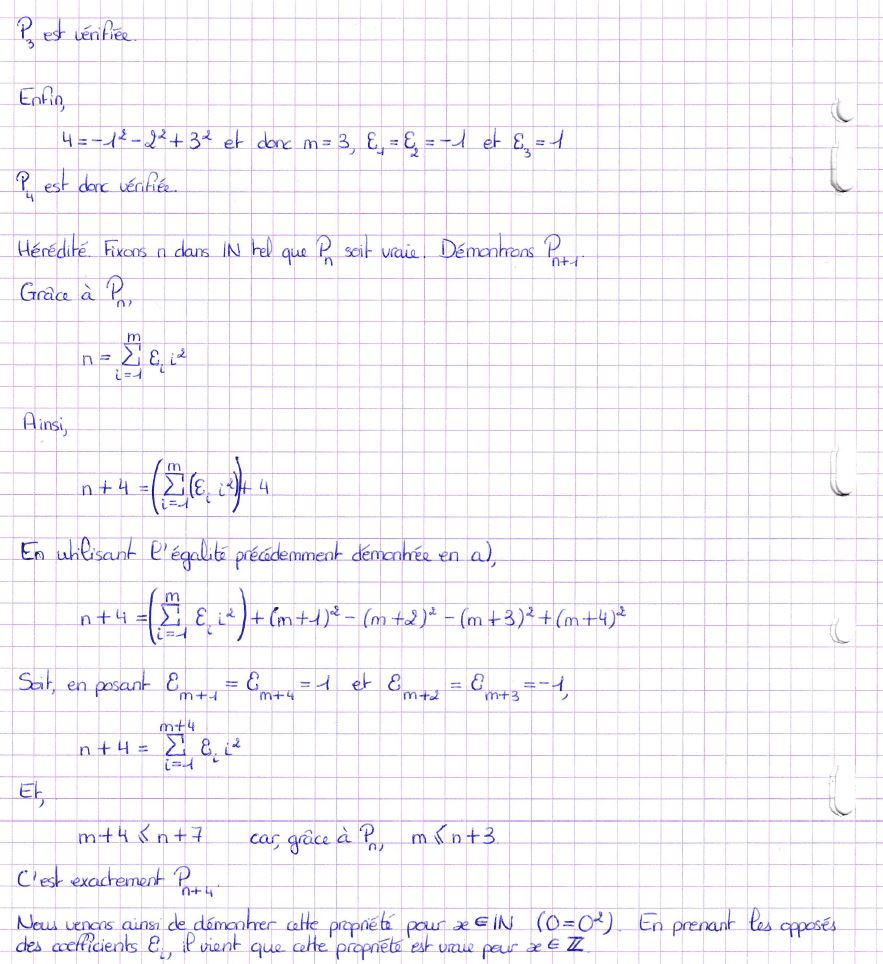 P₃ est vérifiée.
Enfin,
4 = -1² - 2² + 3² et donc m = 3, ε₁ = ε₂ = -1 et ε₃ = 1
P₄ est donc vérifiée.
Hérédité. Fixons n dans IN tel que Pₙ soit vraie. Démontrons Pₙ₊₁.
Grâce à Pₙ,
n = ∑_{i=1}^{m} εᵢ i²
Ainsi,
n + 4 = (∑_{i=1}^{m} (εᵢ i²) + 4
En utilisant l'égalité précédemment démontrée en a),
n + 4 = (∑_{i=1}^{m} εᵢ i²) + (m+1)² - (m+2)² - (m+3)² + (m+4)²
Soit, en posant ε_{m+1} = ε_{m+4} = 1 et ε_{m+2} = ε_{m+3} = -1,
n + 4 = ∑_{i=1}^{m+4} εᵢ i²
Et,
m+4 ⩽ n+7 car, grâce à Pₙ, m ⩽ n+3.
C'est exactement Pₙ₊₄.
Nous venons ainsi de démontrer cette propriété pour x ∈ IN (0 = 0²). En prenant les opposés
des coefficients εᵢ, il vient que cette propriété est vraie pour x ∈ ℤ.